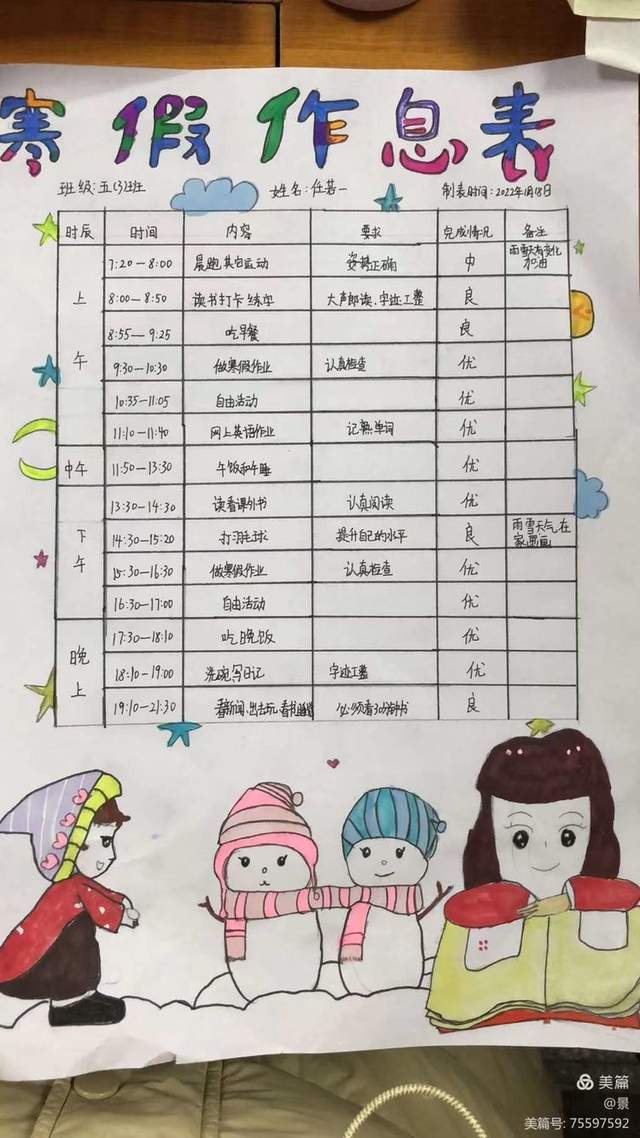 寒假作息表
班级:五(3)班 姓名:任若一 制表时间:2022年1月18日
时辰 时间 内容 要求 完成情况 备注
上午 7:20-8:00 晨跑,其它运动 姿势正确 中 雨雪天有变化 加油
8:00-8:50 读书打卡 练字 大声朗读.字迹工整 良
8:55-9:25 吃早餐 良
9:30-10:30 做寒假作业 认真检查 优
10:35-11:05 自由活动 优
11:10-11:40 网上英语作业 记熟单词 优
中午 11:50-13:30 午饭和午睡 优
下午 13:30-14:30 读看课外书 认真阅读 优
14:30-15:20 打羽毛球 提升自己的水平 良 雨雪天气在家画画
15:30-16:30 做寒假作业 认真检查 优
16:30-17:00 自由活动 优
晚上 17:30-18:10 吃晚饭 优
18:10-19:00 洗碗,写日记 字迹工整 优
19:10-21:30 看新闻.出去玩.看书,睡觉 必须看30分钟书 良
美篇
@景
美篇号: 75597592